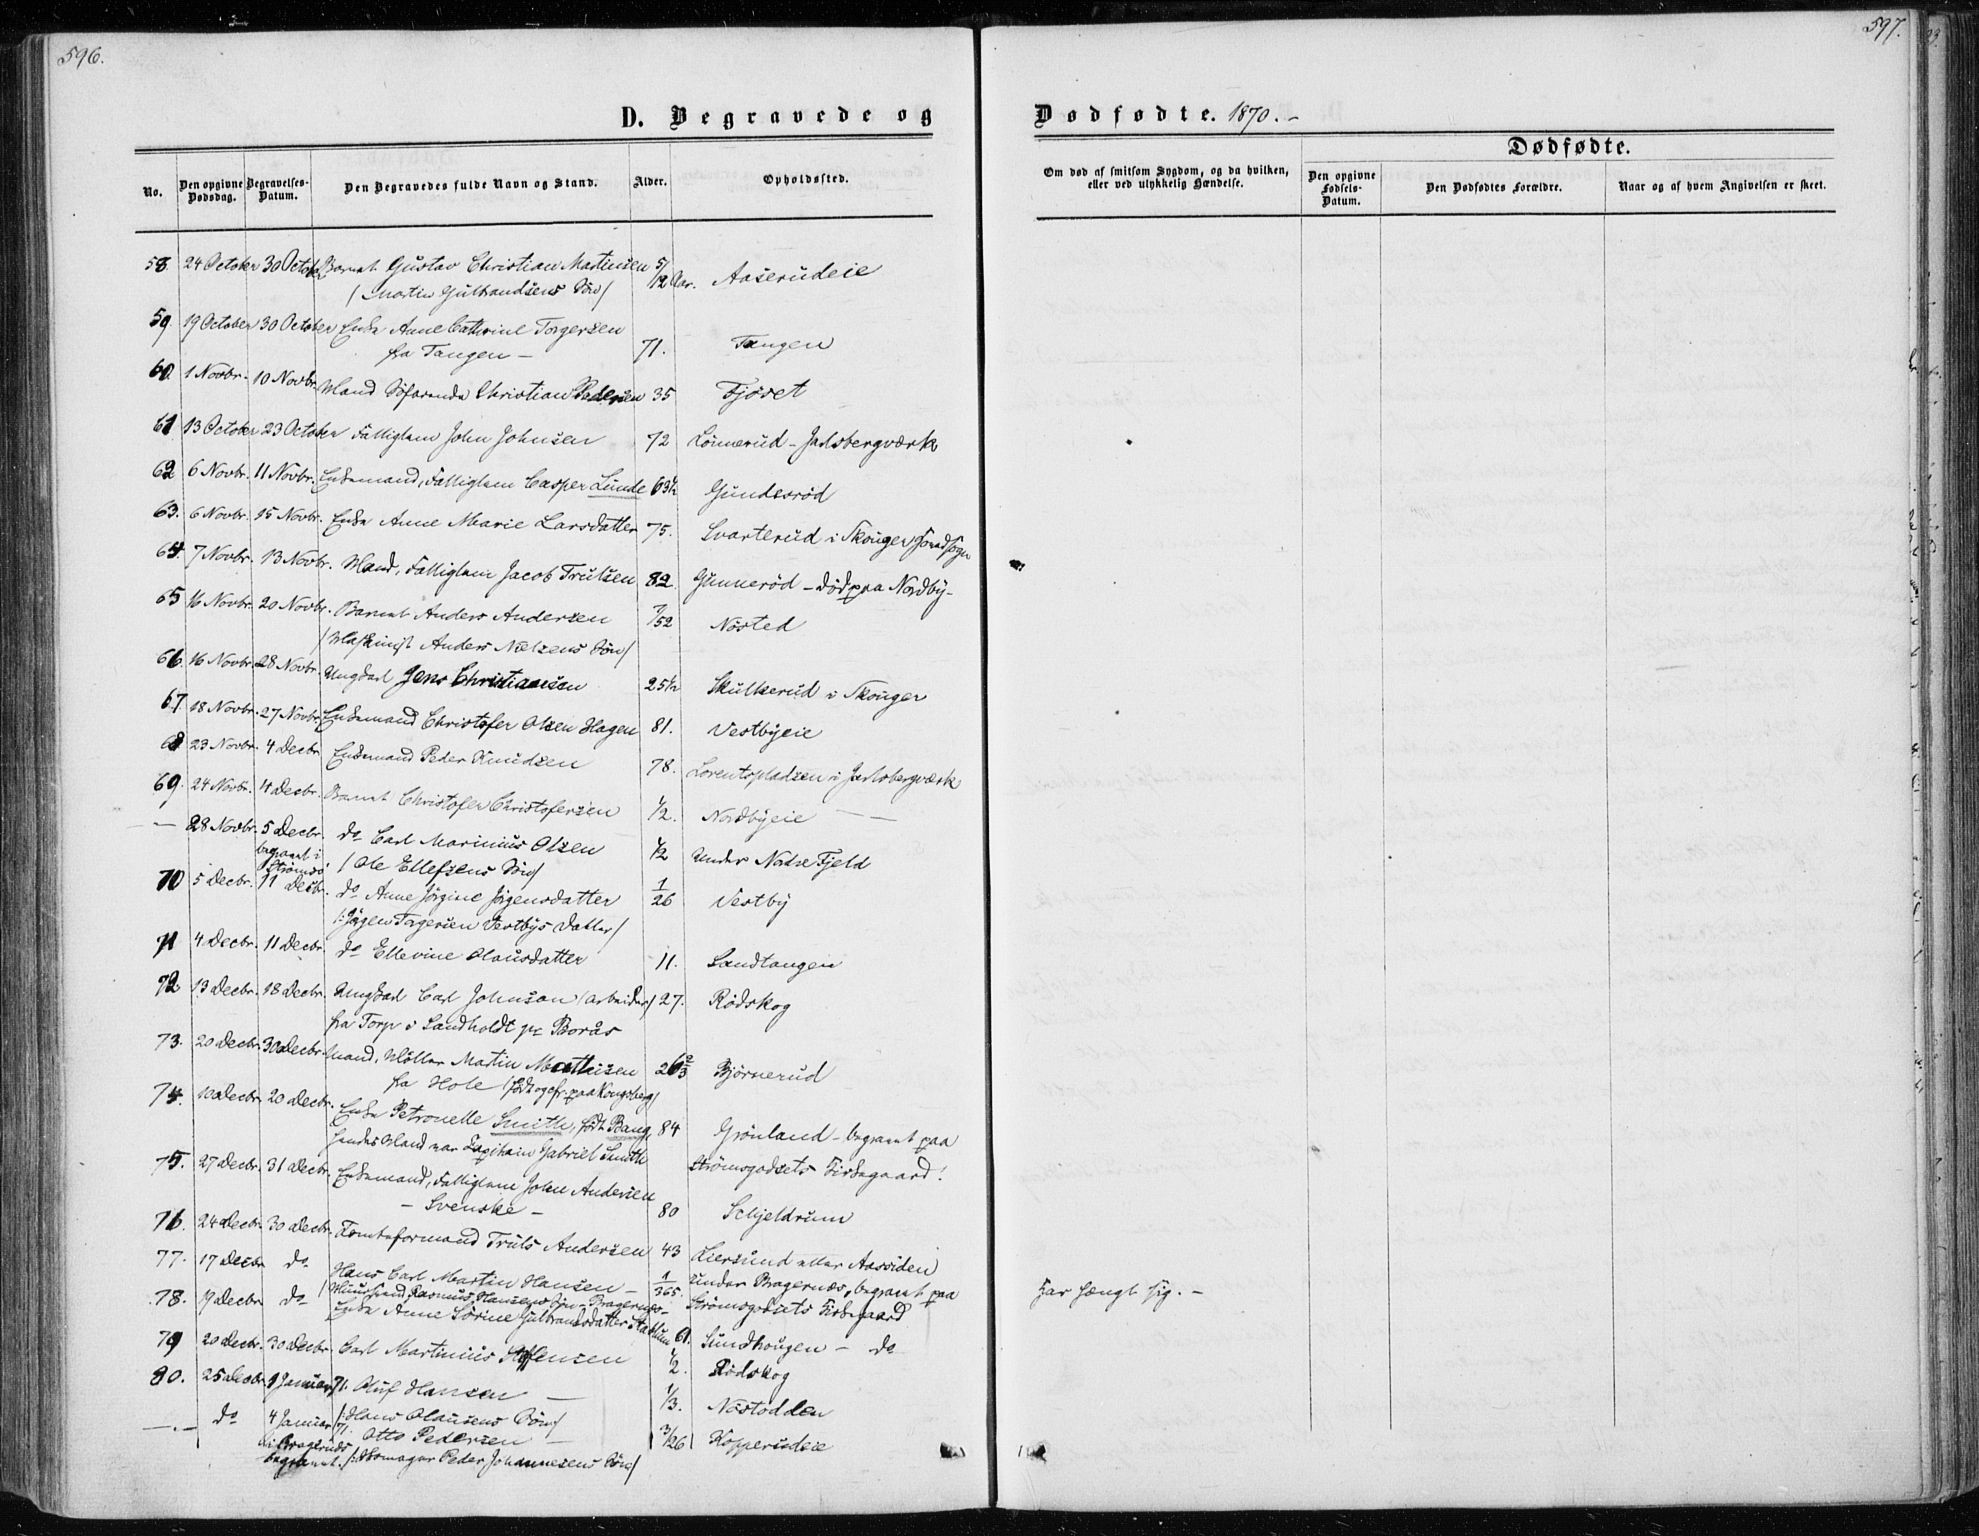 596.
597.
D. Begravede og
Dødfødte. 1870. -
No.
Den opgivne Dødsdag.
Begravelses-Datum.
Den Begravedes fulde Navn og Stand.
Alder.
Opholdssted.
Om død af smitsom Sygdom, og da hvilken, eller ved ulykkelig Hændelse.
Dødfødte.
Den opgivne Fødsels-Datum.
Den Dødfødtes Forældre.
Naar og af hvem Angivelsen er skeet.
58. 24 October 30 October Barnet Gustav Christian Martinsen 5/12 Aar. Aaserudeie
/ Martin Gulbrandsens Søn /
59. 19 October 30 October Enke Anne Cathrine Torgersen
fra Tangen - 71. Tangen
60. 1 Novbr. 10 Novbr. Mand Søfarende Christian Pedersen 35 Fjøset
61 13 October 23 October Fattiglem John Johnsen 72 Lønnerud - Jarlsbergværk
62 6 Novbr. 11 Novbr. Enkemand, Fattiglem Casper Lunde 63½ Gundesrød
63. 6 Novbr. 15 Novbr. Enke Anne Marie Larsdatter 75. Svarterud i Skouger
64. 7 Novbr. 13 Novbr. Mand, Fattiglem Jacob Trulsen 82. Gunnerød - død paa Nordby -
65 16 Novbr. 20 Novbr. Barnet Anders Andersen 7/52 Nøsted
/ Maskinist Anders Nielsens Søn /
66. 16 Novbr. 28 Novbr. Ungkarl Jens Christiansen 25½ Skulkerud i Skouger
67. 18 Novbr. 27 Novbr. Enkemand Christofer Olsen Hagen 81. Vestbyeie
68. 23 Novbr. 4 Decbr. Enkemand Peder Knudsen 78. Lorentspladsen i Jarlsbergværk
69. 24 Novbr. 4 Decbr. Barnet Christofer Christofersen ½. Nordbyeie
— 28 Novbr. 5 Decbr. do Carl Marinius Olsen ½ Under Fjeld
begravet i Strømsø / Ole Ellefsens Søn /
70 5 Decbr. 11 Decbr. do Anne Jørgine Jørgensdatter 1/26 Vestby
/: Jørgen Vestbys Datter /
71 4 Decbr. 11 Decbr. do Ellevine Olausdatter 11. Sandtangen
72 13 Decbr. 18 Decbr. Ungkarl Carl Johnson / Arbeider / 27. Rødskog
fra Torp i Sandholdt pr Borås
73. 20 Decbr. 30 Decbr. Mand, Møller Martin Mathisen 26⅔ Bjørnerud
fra Hole / født og cfr. paa Kongsberg /
74. 10 Decbr. 20 Decbr. Enke Petronelle Smith, født Bang, 84 Grønland - begravet paa
hendes Mand var Kapitain Gabriel Smith Strømsgodsets Kirkegaard!
75. 27 Decbr. 31 Decbr. Enkemand, Fattiglem John Andersen
- Svenske - 80 Schjeldrum
76. 24 Decbr. 30 Decbr. Tomteformand Truls Andersen 43 Liersund eller Aassiden
77. 17 Decbr. do Hans Carl Martin Hansen - 1/365. under Bragernæs, begravet paa
/ Huusmand Rasmus Hansens Søn - Bragernæs - Strømsgodsets Kirkegaard
78. 19 Decbr. do Enke Anne Sørine Gulbrandsdatter 61. Sundhougen - do
Har hængt sig. -
79 20 Decbr. 30 Decbr. Carl Martinius Steffensen ½. Rødskog
80. 25 Decbr. 1 Januar 71. Oluf Hansen — 1/3. Nøstodden
/: Hans Olausens Søn /
—.— do 4 Januar 71 Otto Pedersen — 3/26 Kopperudeie
i Bragernæs begravet. /: Skomager Peder Johannesens Søn /